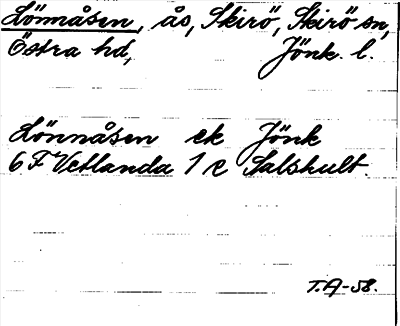 Lönnåsen, ås, Skirö, Skirö sn,
Östra hd, Jönk. l.
Lönnåsen ek Jönk
6 F Vetlanda 1 c Salshult.
T.A-58.